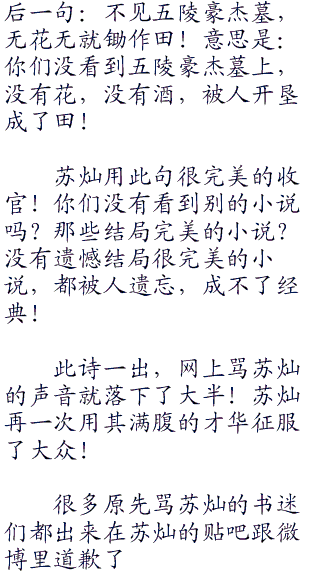 后一句：不见五陵豪杰墓，
无花无就锄作田！意思是：
你们没看到五陵豪杰墓上，
没有花，没有酒，被人开垦
成了田！
苏灿用此句很完美的收
官！你们没有看到别的小说
吗？那些结局完美的小说？
没有遗憾结局很完美的小
说，都被人遗忘，成不了经
典！
此诗一出，网上骂苏灿
的声音就落下了大半！苏灿
再一次用其满腹的才华征服
了大众！
很多原先骂苏灿的书迷
们都出来在苏灿的贴吧跟微
博里道歉了